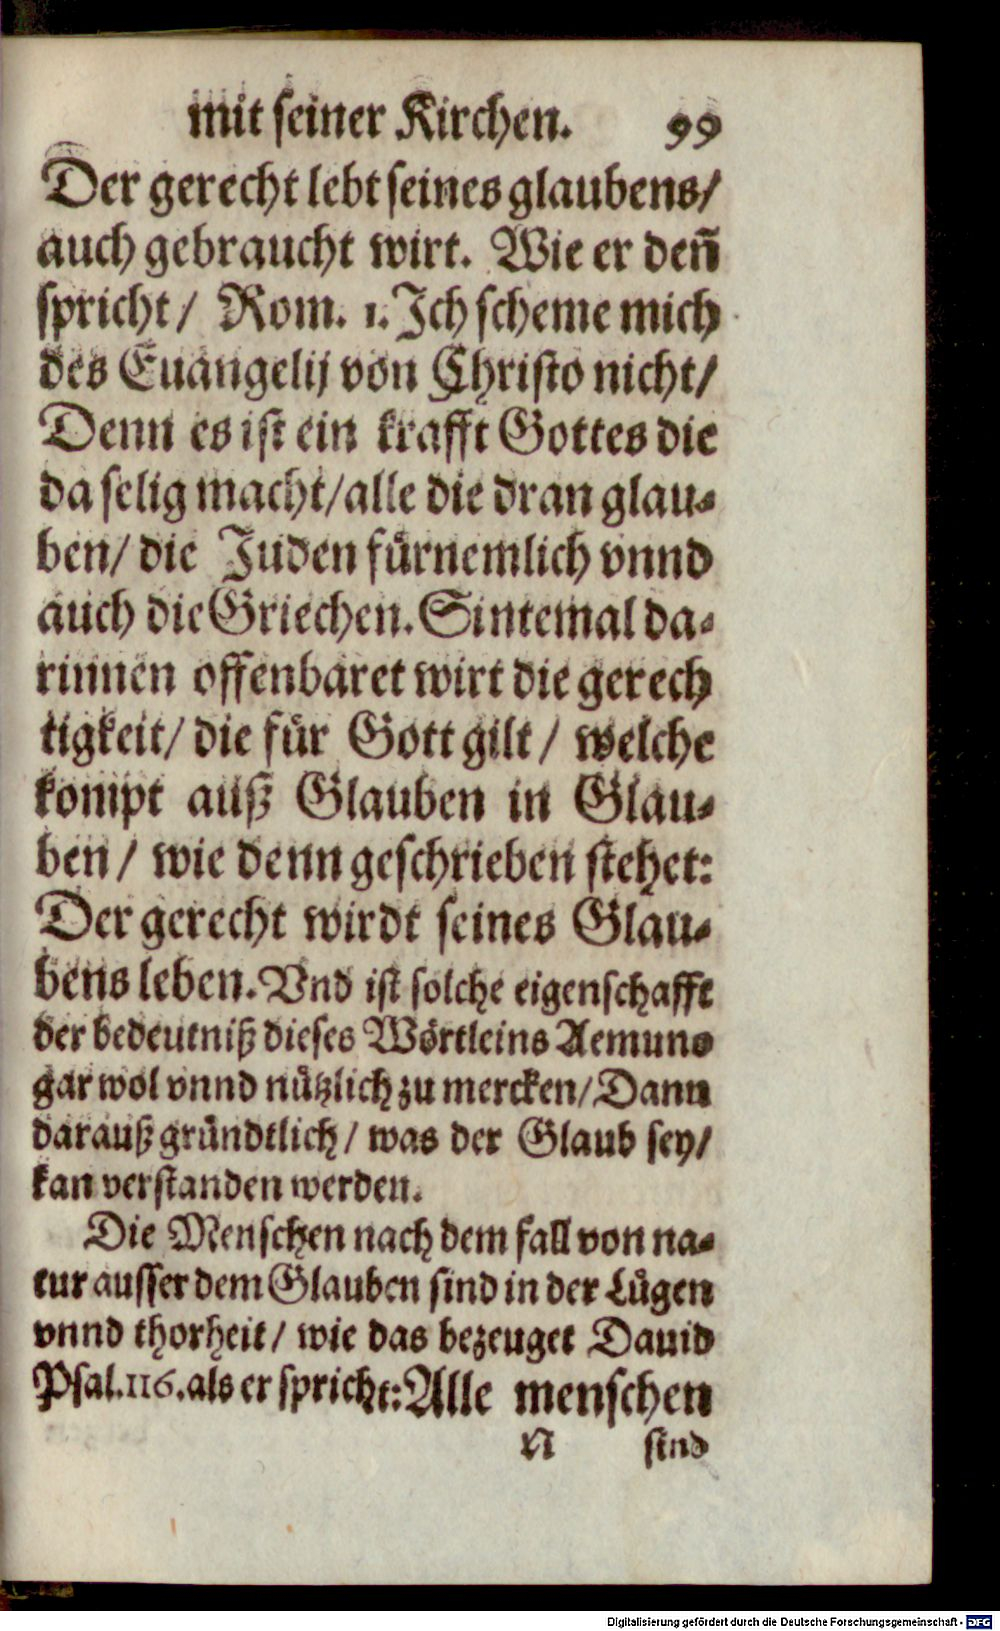 mit seiner Kirchen. 99
Der gerecht lebt seines glaubens/
auch gebraucht wirt. Wie er deñ
spricht/ Rom. 1. Ich scheme mich
des Euangelij von Christo nicht/
Denn es ist ein krafft Gottes die
da selig macht/ alle die dran glau-
ben/ die Juden fürnemlich vnnd
auch die Griechen. Sintemal da-
rinnen offenbaret wirt die gerech
tigkeit/ die für Gott gilt/ welche
kompt auß Glauben in Glau-
ben/ wie denn geschrieben stehet:
Der gerecht wirdt seines Glau-
bens leben. Vnd ist solche eigenschafft
der bedeutniß dieses Wörtleins Aemuno
gar wol vnnd nützlich zu mercken/ Dann
darauß gründtlich/ was der Glaub sey/
kan verstanden werden.
Die Menschen nach dem fall von na-
tur ausser dem Glauben sind in der Lügen
vnnd thorheit/ wie das bezeuget Dauid
Psal. 116. als er spricht: Alle menschen
N sind
Digitalisierung gefördert durch die Deutsche Forschungsgemeinschaft - DFG